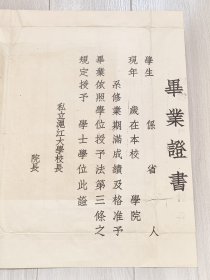 畢業證書
學生　　係　　省　　人
現年　　歲在本校　　學院
　　系修業期滿成績及格准予
畢業依照學位授予法第三條之
規定授予　　學士學位此證
私立滬江大學校長
院長